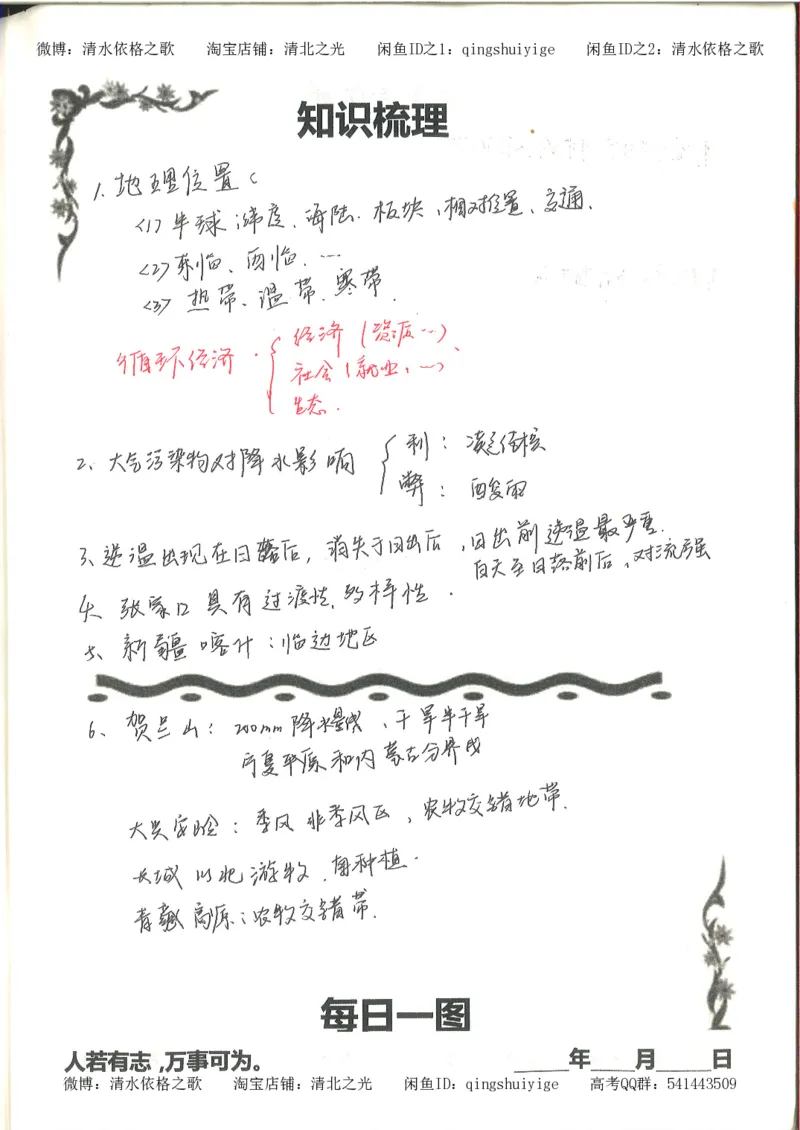 微博：清水依格之歌 淘宝店铺：清北之光 闲鱼ID之1：qingshuiyige 闲鱼ID之2：清水依格之歌
知识梳理
1. 地理位置
<1> 半球、纬度、海陆、板块、相对位置、交通、
<2> 东临、西临、…
<3> 热带、温带、寒带.
循环经济. { 经济（资源…）、
社会（就业，…）
生态.
2、大气污染物对降水影响 { 利：凝结核
弊：酸雨
3、逆温出现在日落后，消失于日出后，日出前逆温最严重.
白天至日落前后，对流强
4、张家口具有过渡性、多样性.
5、新疆喀什：临边地区
6、贺兰山：200mm降水量线、干旱半干旱
宁夏平原和内蒙古分界线
大兴安岭：季风 非季风区，农牧交错地带.
长城 以北游牧、南种植.
青藏高原：农牧交错带.
每日一图
人若有志，万事可为。 ____年____月____日
微博：清水依格之歌 淘宝店铺：清北之光 闲鱼ID：qingshuiyige 高考QQ群：541443509